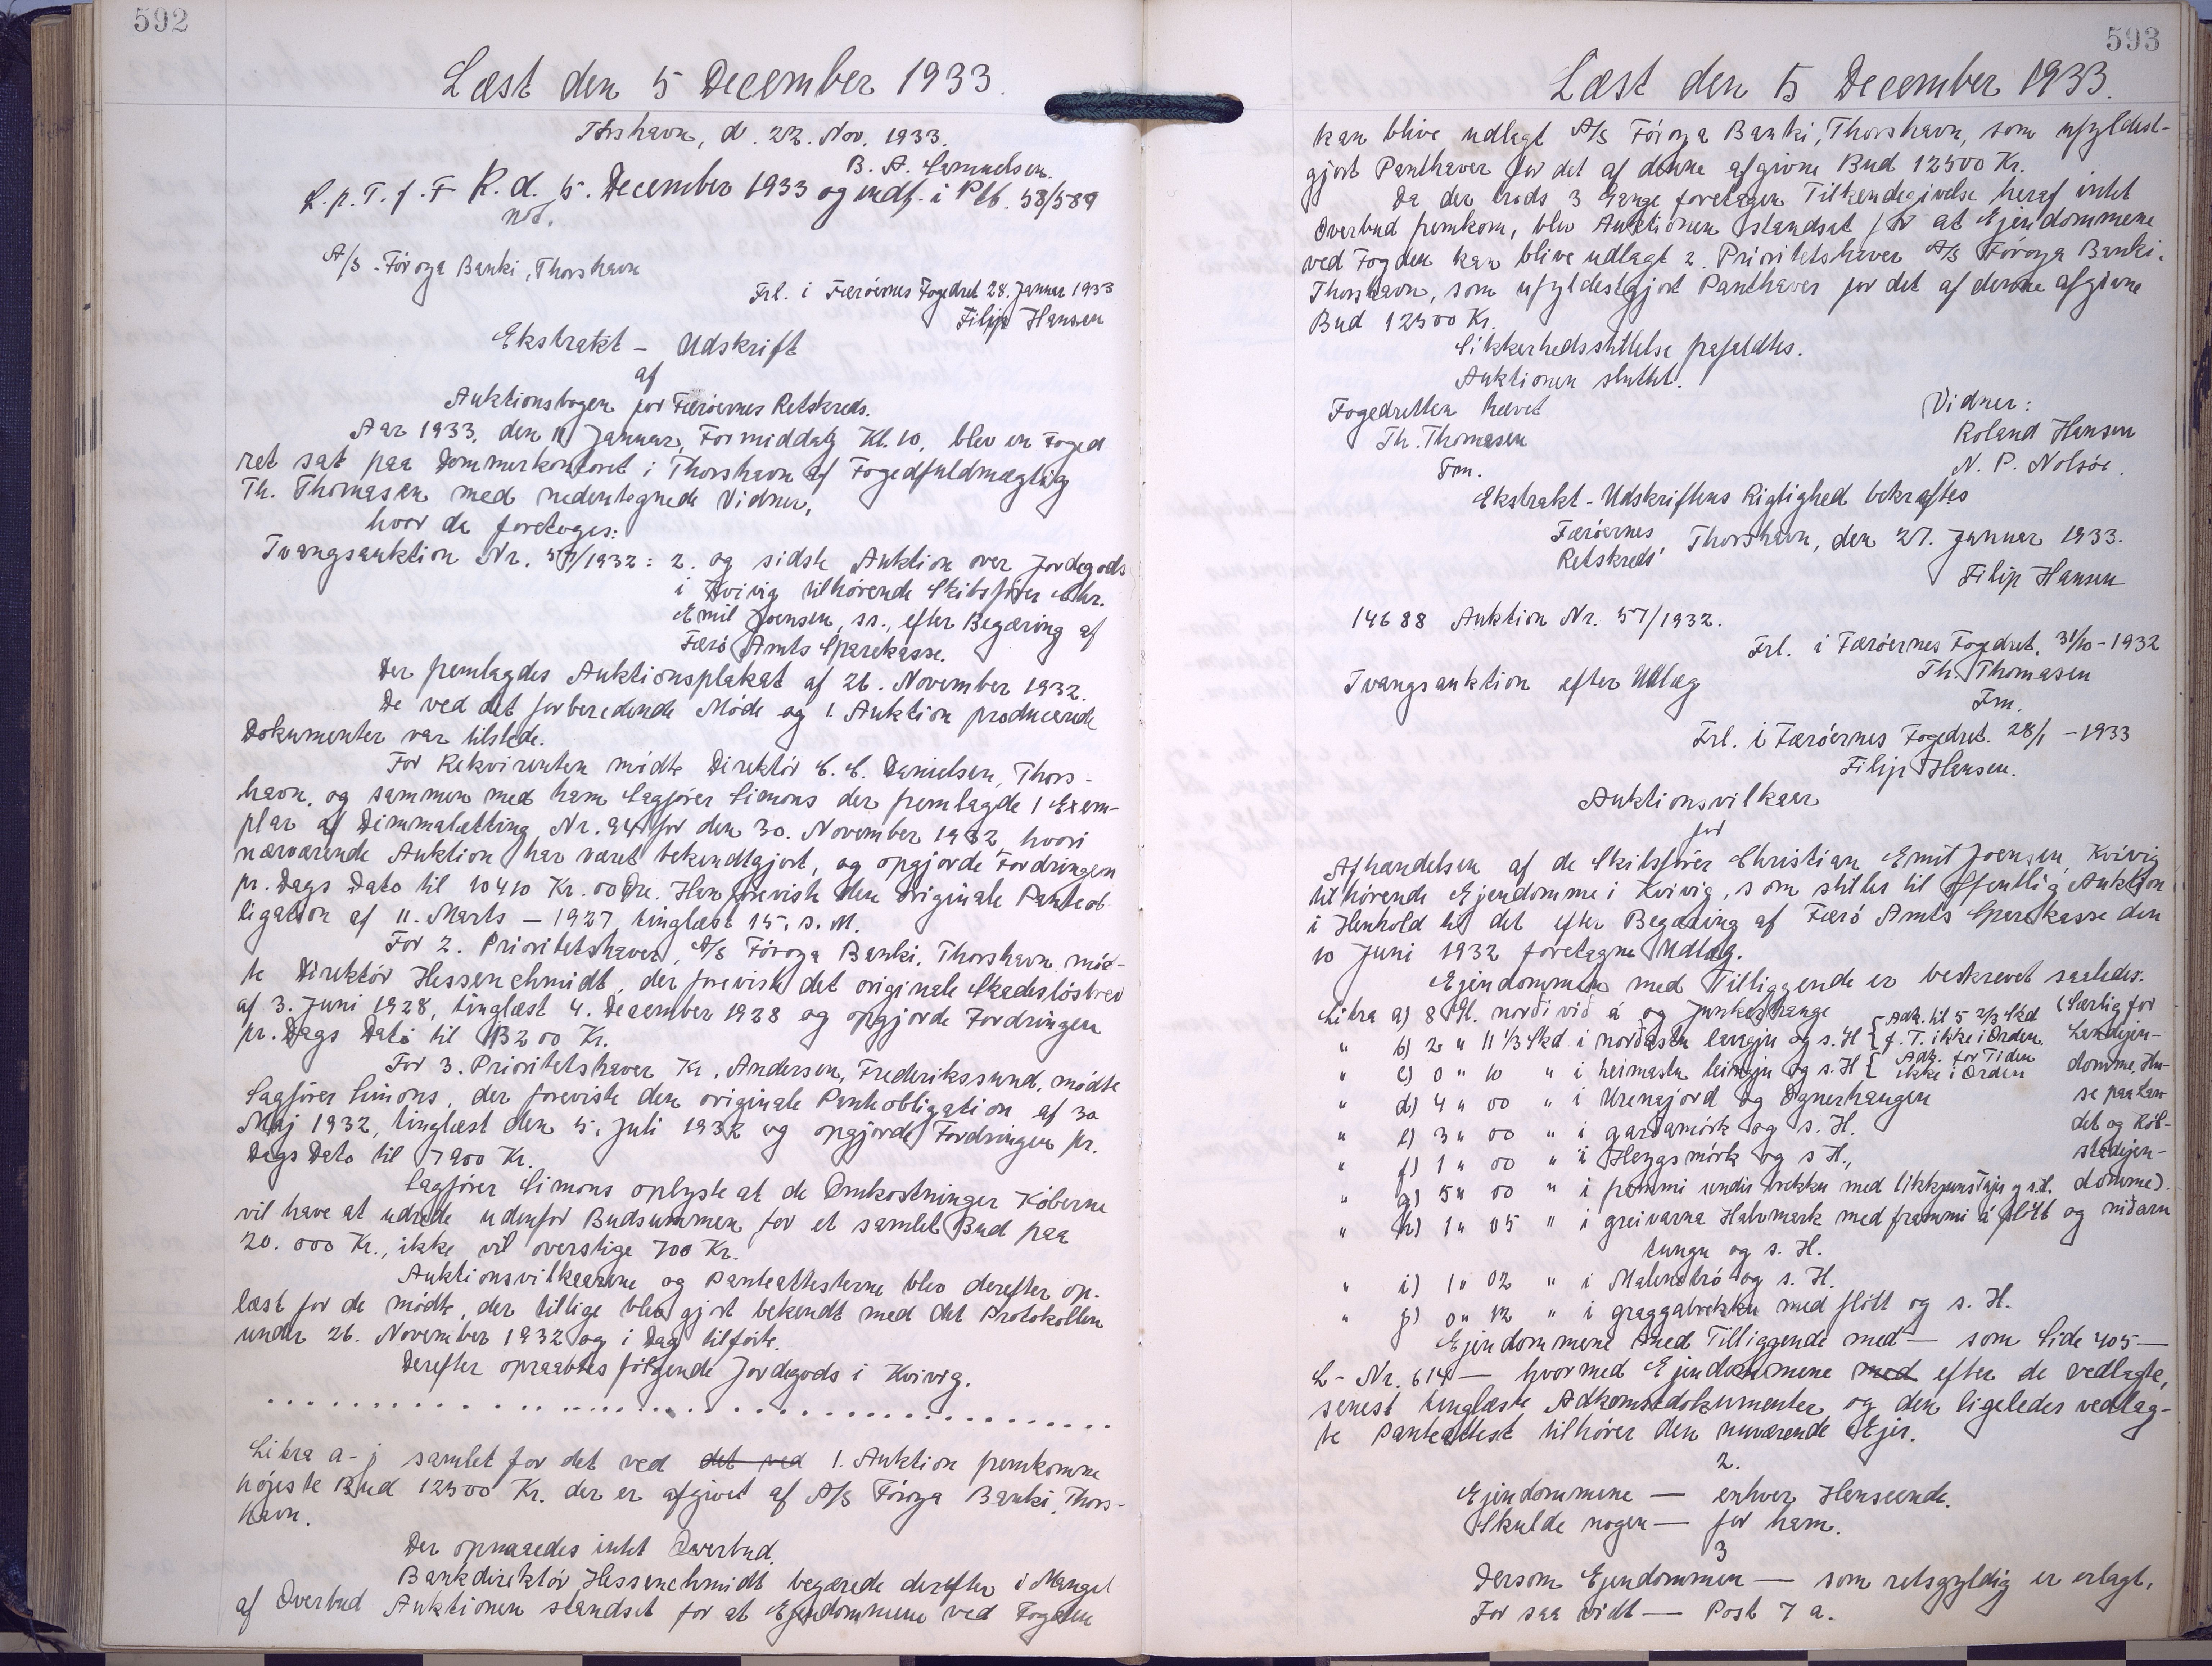 592
Læst den 5 December 1933.
Thshavn, d. 22. Nov. 1933.
B. A. Samuelsen.
L. p. T. f. F R. d. 5. December 1933 og indf. i Ptb. 58/589
not.
A/S. Föroya Banki, Thorshavn
Frl. i Færöernes Fogedret 28. Januar 1933
Filip Hansen
Ekstrakt - Udskrift
af
Auktionsbogen for Færöernes Retskreds.
Aar 1933, den 11 Januar, Formiddag Kl. 10, blev en Foged
ret sat paa Dommerkontoret i Thorshavn af Fogedfuldmægtig
Th. Thomasen med nedentegnede Vidner,
hvor da foretoges:
Tvangsauktion Nr. 57/1932: 2. og sidste Auktion over Jordegods
i Kvivig tilhörende Skibsförer Chr.
Emil Joensen, ss., efter Begæring af
Færö Amts Sparekasse.
Der fremlagdes Auktionsplakat af 26. November 1932.
De ved det forberedende Möde og 1. Auktion producerede
Dokumenter var tilstede.
For Rekvirenten mödte Direktör C. C. Danielsen, Thors-
havn, og sammen med ham Sagförer Simons der fremlagde 1 Exem-
plar af Dimmalætting Nr. 94 for den 30. November 1932, hvori
nærværende Auktion har været bekendtgjort, og opgjorde Fordringen
pr. Dags Dato til 10410 Kr. 00 Öre. Han foreviste den originale Panteob
ligation af 11. Marts - 1927, tinglæst 15. s. M.
For 2. Prioritetshaver, A/S Föroya Banki, Thorshavn möd-
te Direktör Hessenschmidt, der foreviste det originale Skadeslösbrev
af 3. Juni 1928, tinglæst 4. December 1928 og opgjorde Fordringen
pr. Dags Dato til 13200 Kr.
For 3. Prioritetshaver Kr. Andersen, Frederikssund, mödte
Sagförer Simons, der foreviste den originale Panteobligation af 30
Maj 1932, tinglæst den 5. Juli 1932 og opgjorde Fordringen pr.
Dags Dato til 7900 Kr.
Sagförer Simons oplyste at de Omkostninger Köberne
vil have at udrede udenfor Budsummen for et samlet Bud paa
20.000 Kr., ikke vil overstige 700 Kr.
Auktionsvilkaarene og Panteattesterne blev derefter op-
læst for de mödte, der tillige blev gjort bekendt med det Protokollen
under 26. November 1932 og i Dag tilförte.
Derefter opraabtes fölgende Jordegods i Kvivig.
. . . . . . . . . . . . . . . . . . . . . . . . . . . . . . . .
Litra a - j samlet for det ved det ved 1. Auktion fremkomne
höjeste Bud 12500 Kr. der er afgivet af A/S Föroya Banki, Thors-
havn.
Der opnaaedes intet Overbud.
Bankdirektör Hessenschmidt begærede derefter i Mangel
af Overbud Auktionen standset for at Ejendommene ved Fogden
593
Læst den 5 December 1933.
kan blive udlagt A/S Föroya Banki, Thorshavn, som ufyldest-
gjort Panthaver for det af denne afgivne Bud 12500 Kr.
Da der trods 3 Gange foretagen Tilkendegivelse heraf intet
Overbud fremkom, blev Auktionen standset for at Ejendommene
ved Fogden kan blive udlagt 2. Prioritetshaver A/S Föroya Banki,
Thorshavn, som ufyldestgjort Panthaver for det af denne afgivne
Bud 12500 Kr.
Sikkerhedsstillelse frafaldtes.
Auktionen sluttet.
Fogedretten hævet
Vidner:
Th. Thomasen
Roland Hansen
Fm.
N. P. Nolsöe.
Ekstrakt-Udskriftens Rigtighed bekræftes
Færöernes
Retskreds' Thorshavn, den 27. Januar 1933.
Filip Hansen
14688 Auktion Nr. 57/1932.
Frl. i Færöernes Fogedret. 31/10 - 1932
Th. Thomasen
Tvangsauktion efter Udlæg
Fm.
Frl. i Færöernes Fogedret. 28/1 - 1933
Filip Hansen.
Auktionsvilkaar
for
Afhændelsen af de Skibsförer Christian Emil Joensen, Kvivig
tilhörende Ejendomme i Kvivig, som stilles til offentlig Auktion
i Henhold til det efter Begæring af Færö Amts Sparekasse den
10 Juni 1932 foretagne Udlæg.
Ejendommen med Tilliggende er beskrevet saaledes:
Litra a) 8 Gl. norði við á og Junkarhauge { Adk. til 5 2/3 Skd (Særlig for
" b) 2 " 11 1/3 Skd i norðastu langju og s. H { f. T. ikke i Orden. Landejen-
" c) 0 " 10 " i heimastu leingju og s. H { Adk. for Tiden ikke i Orden domme, Hu-
" d) 4 " 00 " i Urenajord og Ognerhaugen se paa Lan
" e) 3 " 00 " i garðamörk og s. H. det og Köb-
" f) 1 " 00 " i Heygsmörk og s H., stadejen-
" g) 5 " 00 " i frammi undir brekku med og s.H. domme).
" h) 1 " 05 " i greivarna Halvmark med frammi á flött og niðaru
tungu og s. H.
" i) 1 " 02 " i Malenströ og s. H.
" j) 0 " 12 " i graggabrekku med flött og s. H.
Ejendommene med Tilliggende med - som Side 405 -
L- Nr. 614 - hvormed Ejendommene med efter de vedlagte,
senest tinglæste Adkomstdokumenter og den ligeledes vedlag-
te Panteattest tilhörer den nuværende Ejer.
2.
Ejendommene - enhver Henseende.
Skulde nogen - for ham.
3
Dersom Ejendommen - som retsgyldig er erlagt,
For saa vidt - Post 7 a.